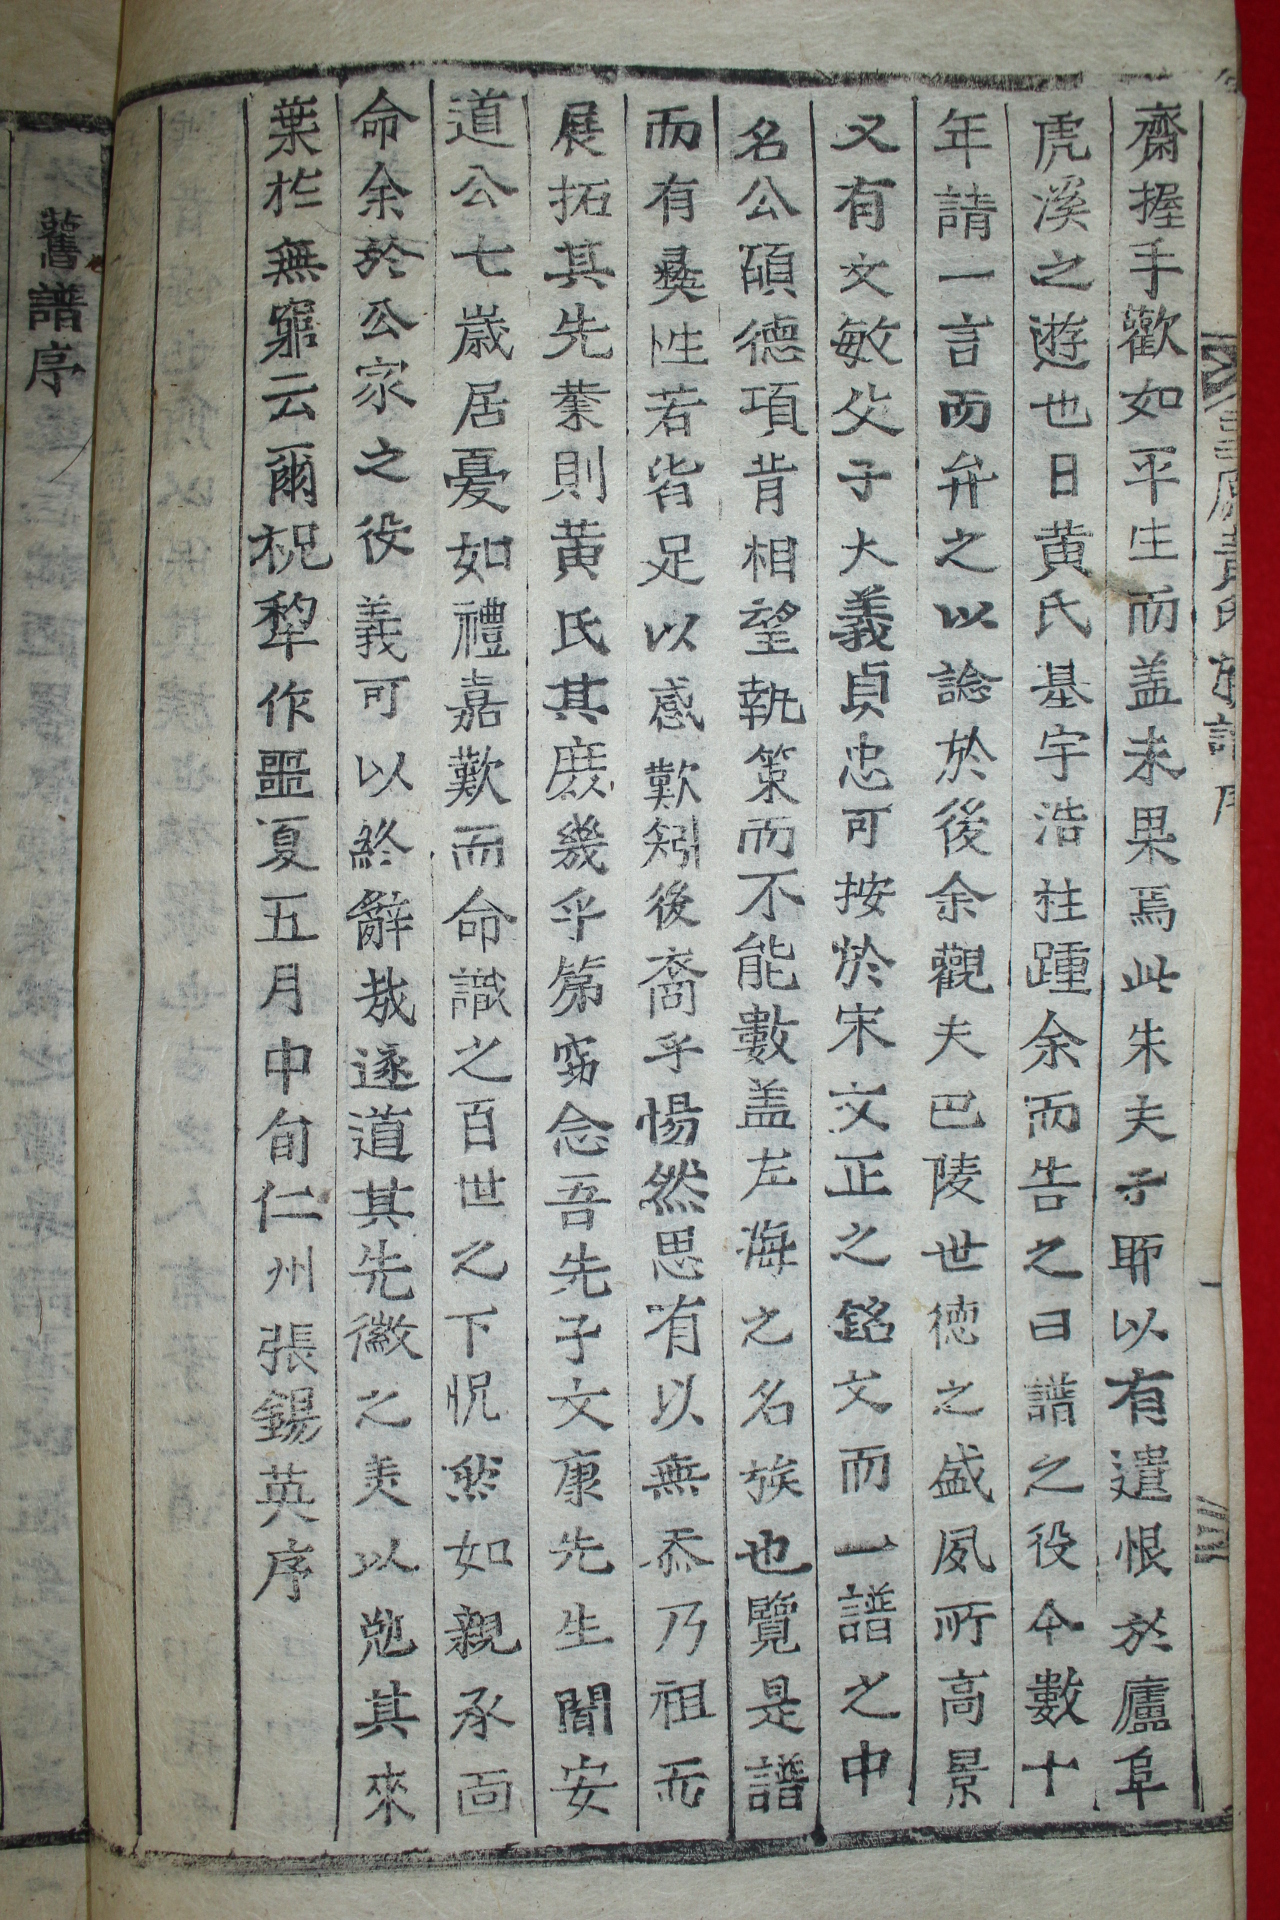 齋握手歡如平生而盖未果焉此朱夫子耶以有遣恨於廬阜
虎溪之遊也日黃氏基宇浩柱踵余而告之曰譜之役今數十
年請一言而弁之以諗於後余觀夫巴陵世德之盛夙所高景
又有文敏父子大義貞忠可按於宋文正之銘文而一譜之中
名公碩德項背相望執策而不能數盖左海之名族也覽是譜
而有彝性若皆足以感歎矧後裔乎惕然思有以無忝乃祖而
展拓其先業則黃氏其庶幾乎第窃念吾先子文康先生聞安
道公七歲居憂如禮嘉歎而命識之百世之下怳然如親承面
命余於公家之役義可以終辭哉遂道其先徽之美以勉其來
葉於無窮云爾柷犁作噩夏五月中旬仁州張錫英序
舊譜序